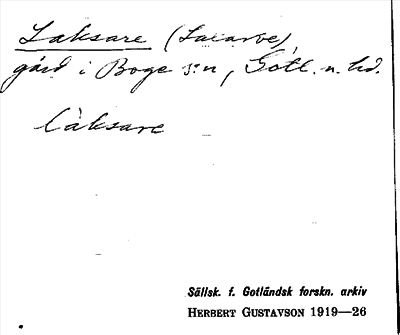 Laksare (Laxarve)
gård i Boge s:n, Gotl. n. hd.
làksare
Sällsk. f. Gotländsk forskn. arkiv
HERBERT GUSTAVSON 1919—26